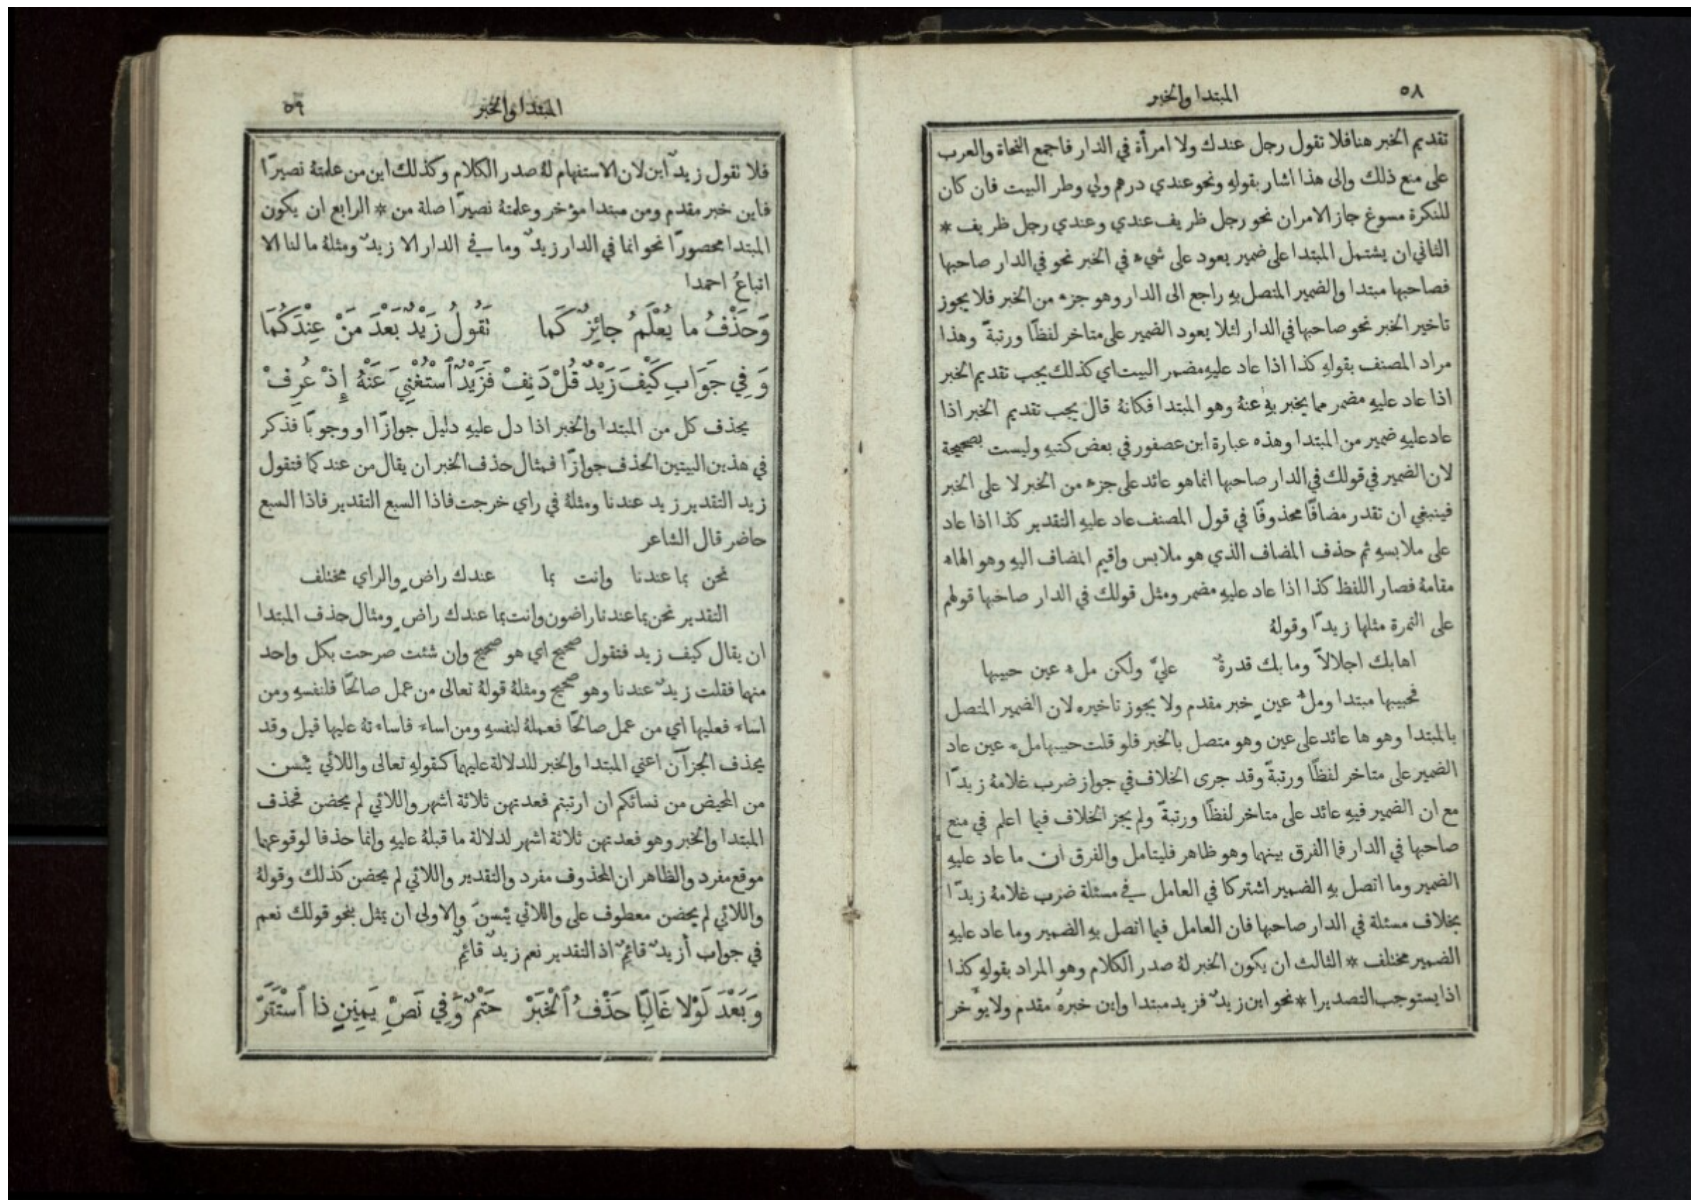 ٥٨
المبتدا والخبر
تقديم الخبر هنا فلا تقول رجل عندك ولا امرأة في الدار فاجمع النحاة والعرب
على منع ذلك والى هذا اشار بقولهِ ونحو عندي درهم ولي وطر البيت فان كان
للنكرة مسوغ جاز الامران نحو رجل ظريف عندي وعندي رجل ظريف *
الثاني ان يشتمل المبتدا على ضمير يعود على شيء في الخبر نحو في الدار صاحبها
فصاحبها مبتدا والضمير المتصل بهِ راجع الى الدار وهو جزء من الخبر فلا يجوز
تاخير الخبر نحو صاحبها في الدار لئلا يعود الضمير على متاخر لفظًا ورتبةً وهذا
مراد المصنف بقولهِ كذا اذا عاد عليهِ مضمر البيت اي كذلك يجب تقديم الخبر
اذا عاد عليهِ مضمر مما يخبر بهِ عنهُ وهو المبتدا فكانهُ قال يجب تقديم الخبر اذا
عاد عليهِ ضمير من المبتدا وهذه عبارة ابن عصفور في بعض كتبهِ وليست بصحيحة
لان الضمير في قولك في الدار صاحبها انما هو عائد على جزء من الخبر لا على الخبر
فينبغي ان تقدر مضافًا محذوفًا في قول المصنف عاد عليهِ التقدير كذا اذا عاد
على ملابسهِ ثم حذف المضاف الذي هو ملابس واقيم المضاف اليهِ وهو الهاء
مقامهُ فصار اللفظ كذا اذا عاد عليهِ مضمر ومثل قولك في الدار صاحبها قولهم
على التمرة مثلها زبدًا وقولهُ
اهابك اجلالاً وما بك قدرةٌ عليَّ ولكن ملء عين حبيبها
فحبيبها مبتدا وملءُ عينٍ خبر مقدم ولا يجوز تاخيره لان الضمير المتصل
بالمبتدا وهو ها عائد على عين وهو متصل بالخبر فلو قلت حبيبها ملء عين عاد
الضمير على متاخر لفظًا ورتبةً وقد جرى الخلاف في جواز ضرب غلامهُ زيدًا
مع ان الضمير فيهِ عائد على متاخر لفظًا ورتبةً ولم يجز الخلاف فيما اعلم في منع
صاحبها في الدار فما الفرق بينهما وهو ظاهر فليتامل والفرق ان ما عاد عليهِ
الضمير وما اتصل بهِ الضمير اشتركا في العامل في مسئلة ضرب غلامهُ زيدًا
بخلاف مسئلة في الدار صاحبها فان العامل فيما اتصل بهِ الضمير وما عاد عليهِ
الضمير مختلف * الثالث ان يكون الخبر لهُ صدر الكلام وهو المراد بقولهِ كذا
اذا يستوجب التصديرا * نحو اين زيدٌ فزيد مبتدا واين خبرهُ مقدم ولا يوَّخر
المبتدا والخبر
٥٩
فلا نقول زيدٌ اين لان الاستفهام لهُ صدر الكلام وكذلك اين من علمتهُ نصيرًا
فاين خبر مقدم ومن مبتدا مؤخر وعلمتهُ نصيرًا صلة من * الرابع ان يكون
المبتدا محصورًا نحو انما في الدار زيدٌ وما في الدار الا زيدٌ ومثلهُ ما لنا الا
اتباعُ احمدا
وَحَذْفُ ما يُعْلَمُ جائِزٌ كَما تَقُولُ زَيْدٌ بَعْدَ مَنْ عِنْدَكُمَا
وَفِي جَوَابِ كَيْفَ زَيْدٌ قُلْ دَنِفْ فَزَيْدٌ ٱسْتُغْنِيَ عَنْهُ إِذْ عُرِفْ
يحذف كل من المبتدا والخبر اذا دل عليهِ دليل جوازًا او وجوبًا فذكر
في هذين البيتين الحذف جوازًا فمثال حذف الخبر ان يقال من عندكما فتقول
زيد التقدير زيد عندنا ومثلهُ في راي خرجت فاذا السبع التقدير فاذا السبع
حاضر قال الشاعر
نحن بما عندنا وانت بما عندك راضٍ والراي مختلف
التقدير نحن بما عندنا راضون وانت بما عندك راضٍ ومثال حذف المبتدا
ان يقال كيف زيد فتقول صحيح اي هو صحيح وإن شئت صرحت بكل واحد
منهما فقلت زيدٌ عندنا وهو صحيح ومثلهُ قولهُ تعالى من عمل صالحًا فلنفسهِ ومن
اساء فعليها اي من عمل صالحًا فعملهُ لنفسهِ ومن اساء فاساءتهُ عليها قيل وقد
يحذف الجزآن اعني المبتدا والخبر للدلالة عليهما كقولهِ تعالى واللائي يئسن
من المحيض من نسائكم ان ارتبتم فعدتهن ثلاثة اشهر واللائي لم يحضن فحذف
المبتدا والخبر وهو فعدتهن ثلاثة اشهر لدلالة ما قبلهُ عليهِ وانما حذفا لوقوعهما
موقع مفرد والظاهر ان المحذوف مفرد والتقدير واللائي لم يحضن كذلك وقولهُ
واللائي لم يحضن معطوف على واللائي يئسنَ والاولى ان يمثل بنحو قولك نعم
في جواب أزيدٌ قائِمٌ اذ التقدير نعم زيدٌ قائِمٌ
وَبَعْدَ لَوْلا غَالِبًا حَذْفُ ٱلْخَبَرْ حَتْمٌ وَفِي نَصِّ يَمِينٍ ذا ٱسْتَقَرّْ